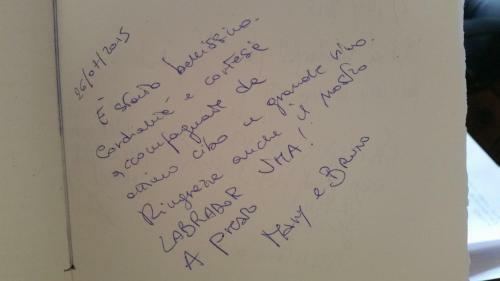 26/07/2015
È stato bellissimo.
Cordialità e cortesia
accompagnate da
ottimo cibo e grande vino.
Ringrazia anche il nostro
LABRADOR UMA!
A presto
Mary e Bruno